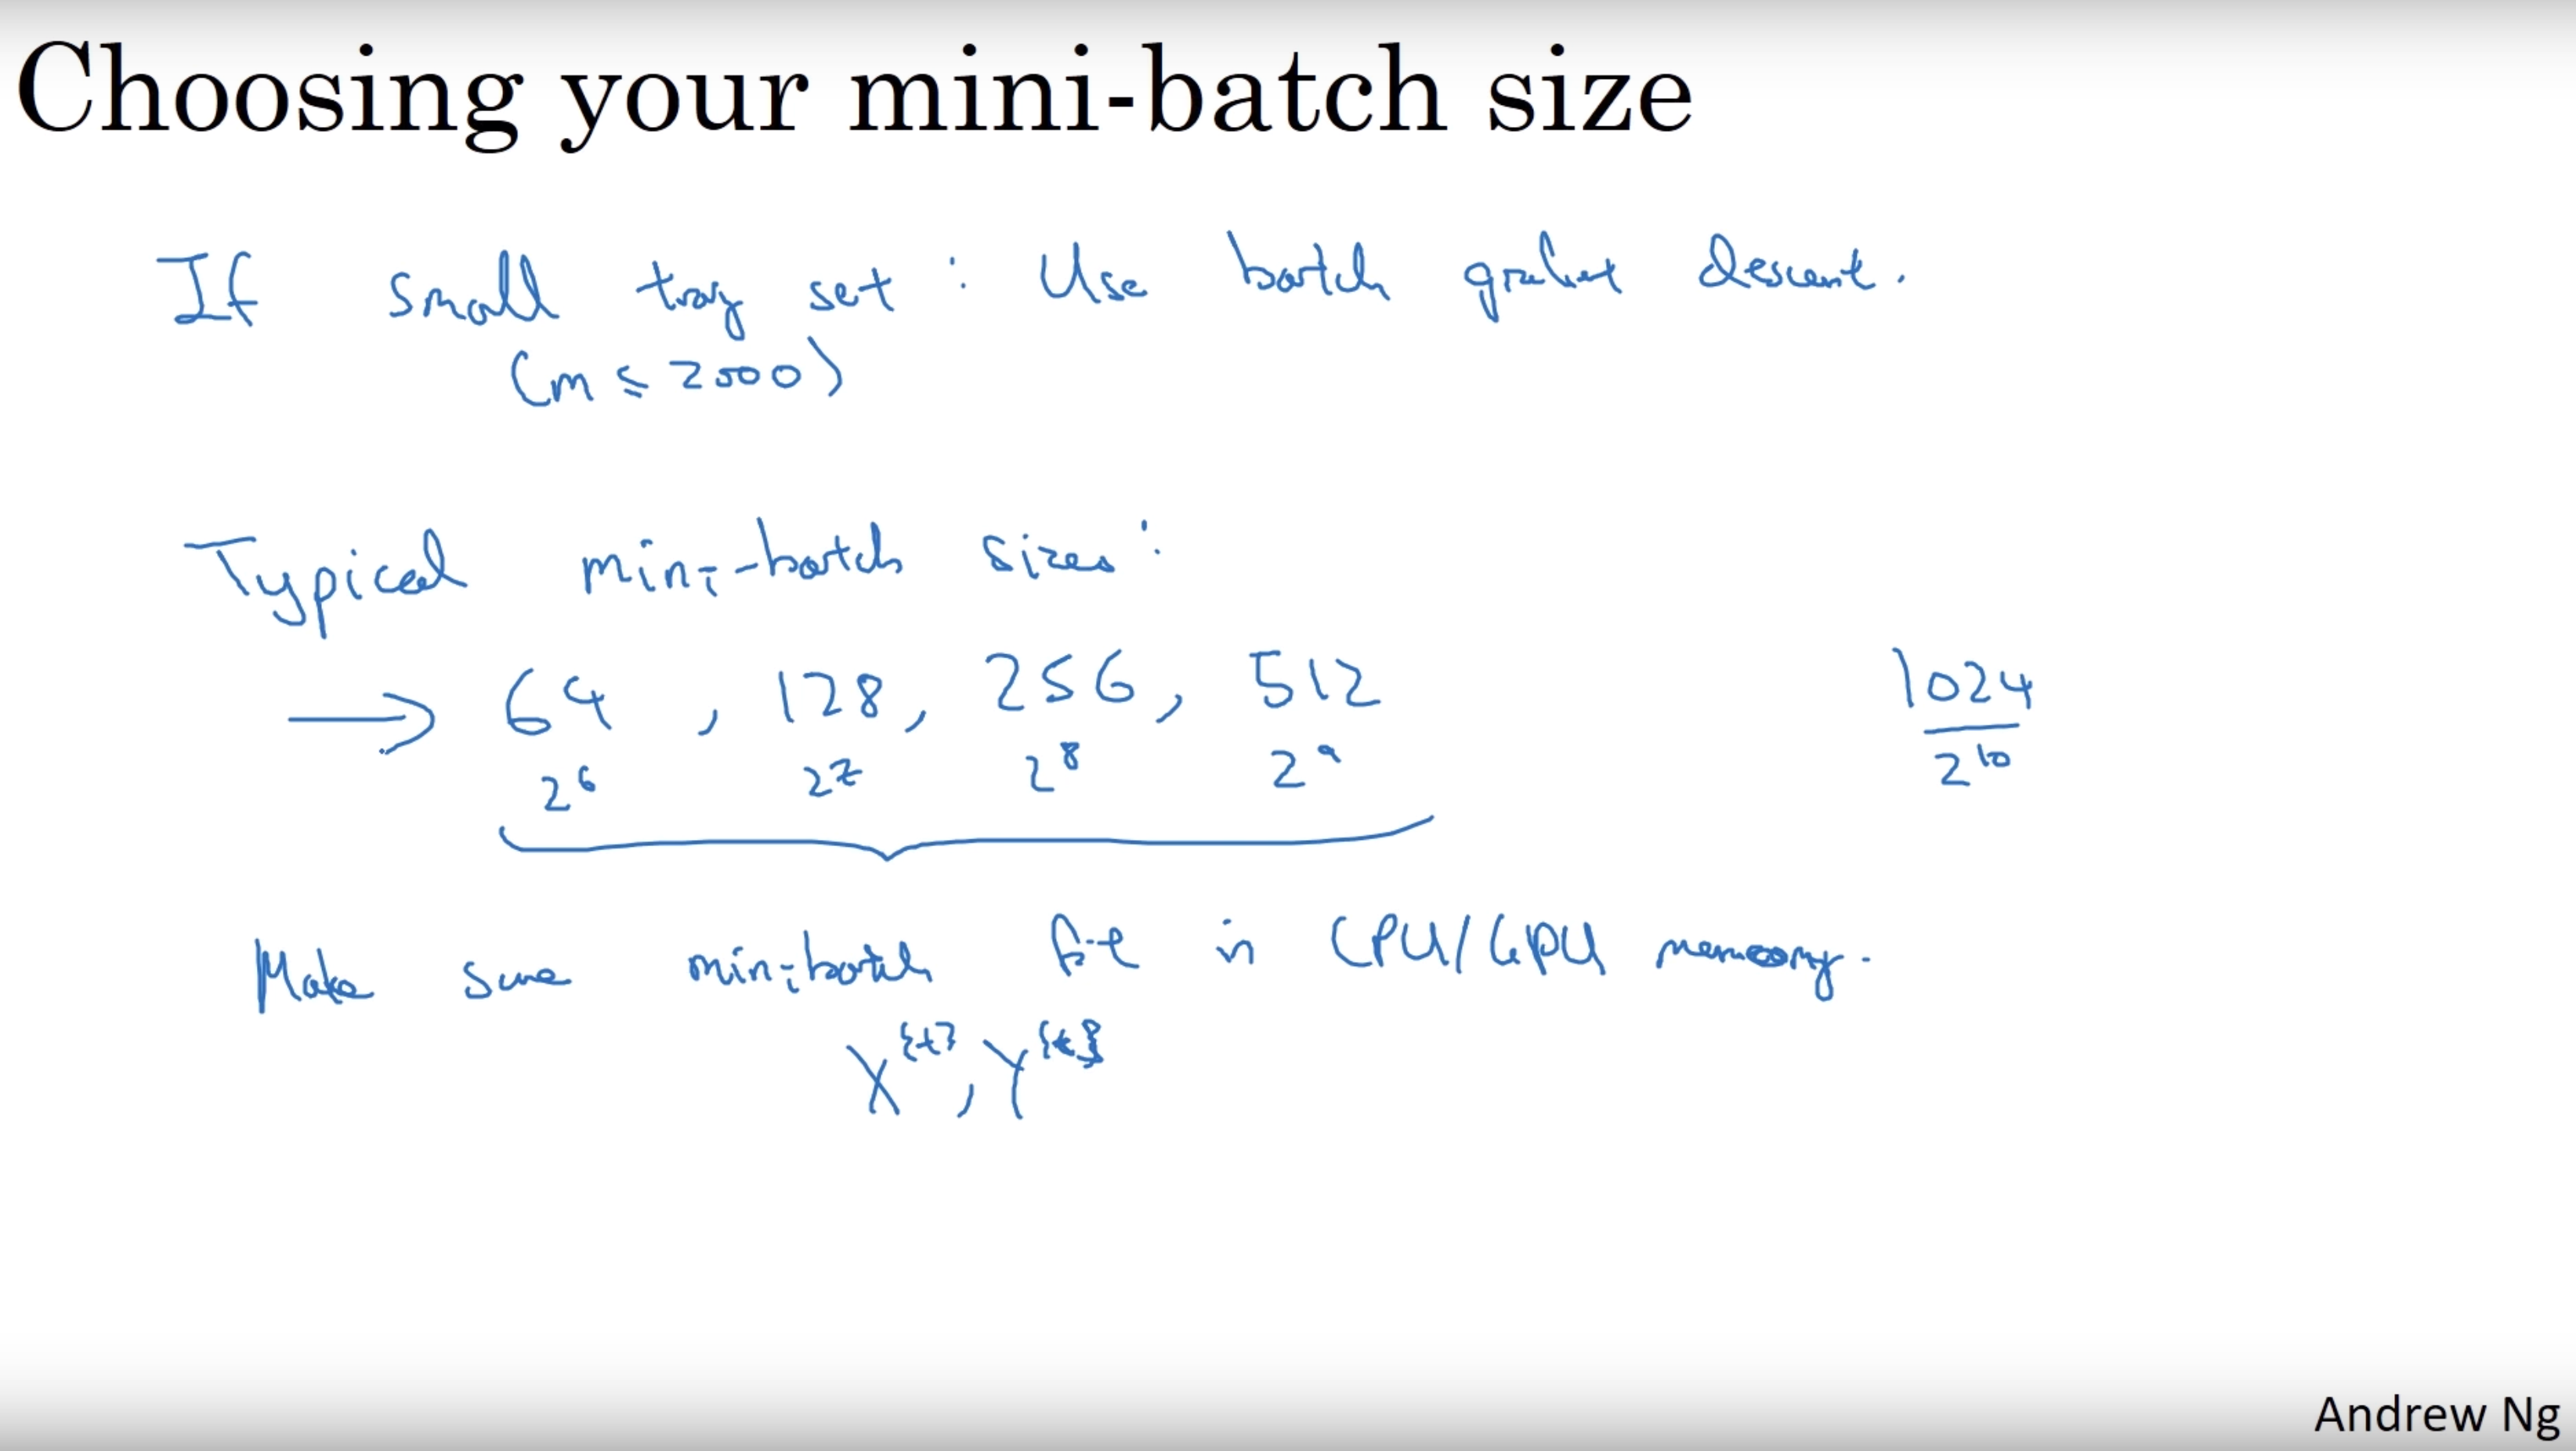 Choosing your mini-batch size
If small tray set : Use batch gradient descent.
(m ≤ 2000)
Typical mini-batch sizes:
→ 64 , 128, 256, 512 1024
2⁶ 2⁷ 2⁸ 2⁹ 2¹⁰
Make sure minibatch fit in CPU/GPU memory.
X^{t}, Y^{t}
Andrew Ng